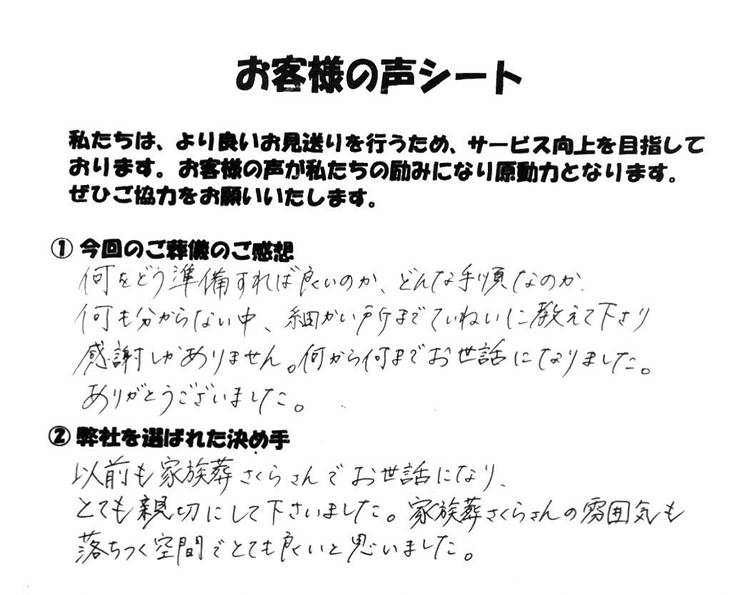 お客様の声シート
私たちは、より良いお見送りを行うため、サービス向上を目指して
おります。お客様の声が私たちの励みになり原動力となります。
ぜひご協力をお願いいたします。
① 今回のご葬儀のご感想
何をどう準備すれば良いのか、どんな手順なのか
何も分からない中、細かい所までていねいに教えて下さり
感謝しかありません。何から何までお世話になりました。
ありがとうございました。
② 弊社を選ばれた決め手
以前も家族葬さくらさんでお世話になり、
とても親切にして下さいました。家族葬さくらさんの雰囲気も
落ちつく空間でとても良いと思いました。